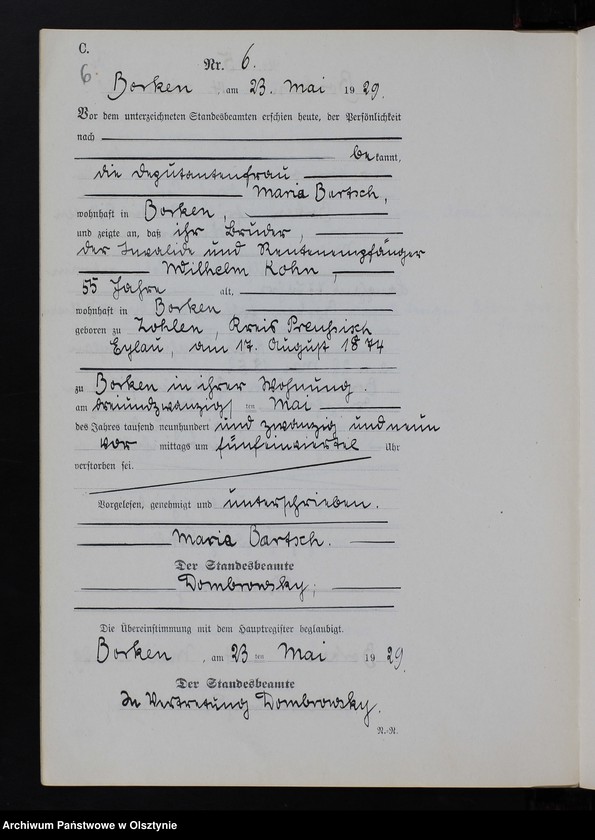 C.
6.
Nr. 6.
Borken am 23. Mai 1929.
Vor dem unterzeichneten Standesbeamten erschien heute, der Persönlichkeit
nach
bekannt,
die Deputantenfrau
Maria Bartsch,
wohnhaft in Borken,
und zeigte an, daß ihr Bruder,
der Invalide und Rentenempfänger
Wilhelm Kohn,
55 Jahre alt,
wohnhaft in Borken
geboren zu Zohlen, Kreis Preußisch
Eylau, am 17. August 1874
zu Borken in ihrer Wohnung.
am dreiundzwanzigsten Mai
des Jahres tausend neunhundert und zwanzig und neun
vor mittags um fünfeinviertel Uhr
verstorben sei.
Vorgelesen, genehmigt und unterschrieben.
Maria Bartsch.
Der Standesbeamte
Dombrowsky,
Die Übereinstimmung mit dem Hauptregister beglaubigt.
Borken, am 23 ten Mai 1929.
Der Standesbeamte
In Vertretung Dombrowsky.
N.-N.
Archiwum Państwowe w Olsztynie